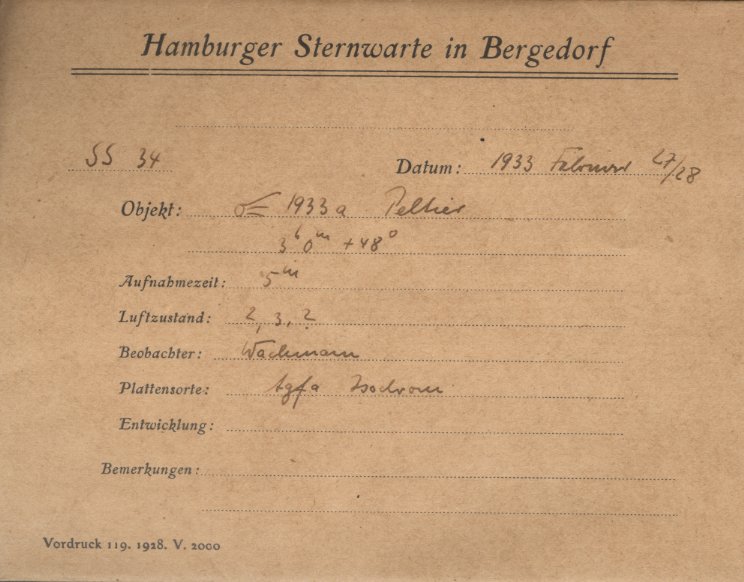 Hamburger Sternwarte in Bergedorf
SS 34 Datum: 1933 Februar 27/28
Objekt: ☄ 1933a Peltier
3ʰ 0ᵐ +48°
Aufnahmezeit: 5ᵐ
Luftzustand: 2, 3, 2
Beobachter: Wachmann
Plattensorte: Agfa Isochrom
Entwicklung:
Bemerkungen:
Vordruck 119. 1928. V. 2000